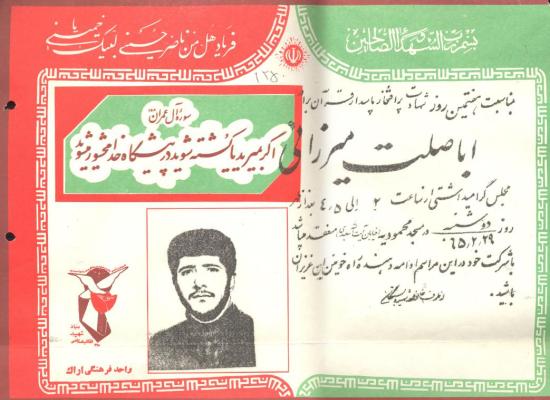 بسم رب الشهداء و الصالحین
فریاد هل من ناصر حسینی لبیک یا خمینی
۱۲۵
سوره آل عمران
اگر بمیرید یا کشته شوید در پیشگاه خدا محشور میشوید
بمناسبت هفتمین روز شهادت پرافتخار پاسدار قرآن برادر
اباصلت میرزائی
مجلس گرامیداشتی از ساعت ۲ الی ۴،۵ بعد از ظهر
روز دوشنبه ۶۵،۲،۲۹ در مسجد محمودیه منعقد میباشد
با شرکت خود در این مراسم ادامه دهنده راه خونین این عزیزان
باشید.
بنیاد
شهید
انقلاب اسلامی
واحد فرهنگی اراک